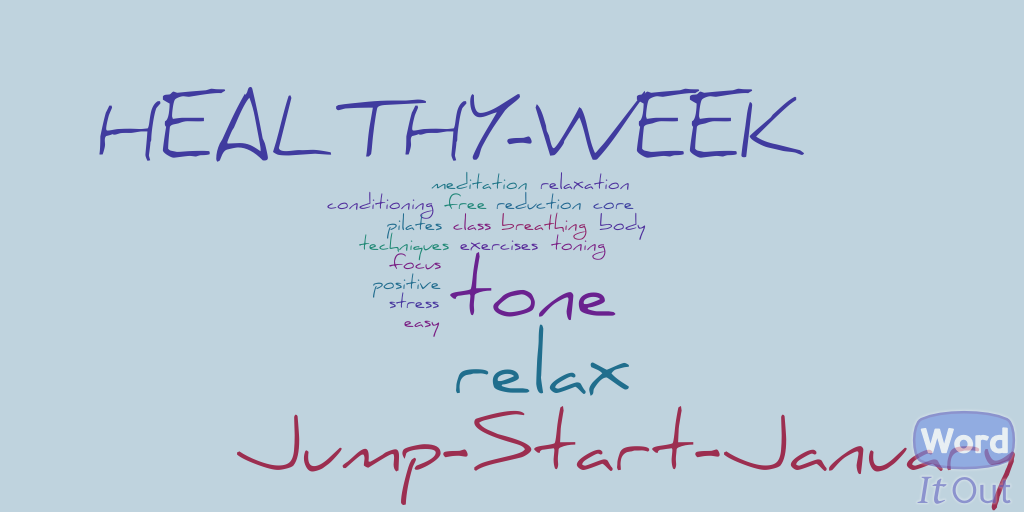 HEALTHY-WEEK
meditation relaxation
conditioning free reduction core
pilates class breathing body
techniques exercises toning
focus
positive
stress
easy
tone
relax
Jump-Start-January
Word
It Out